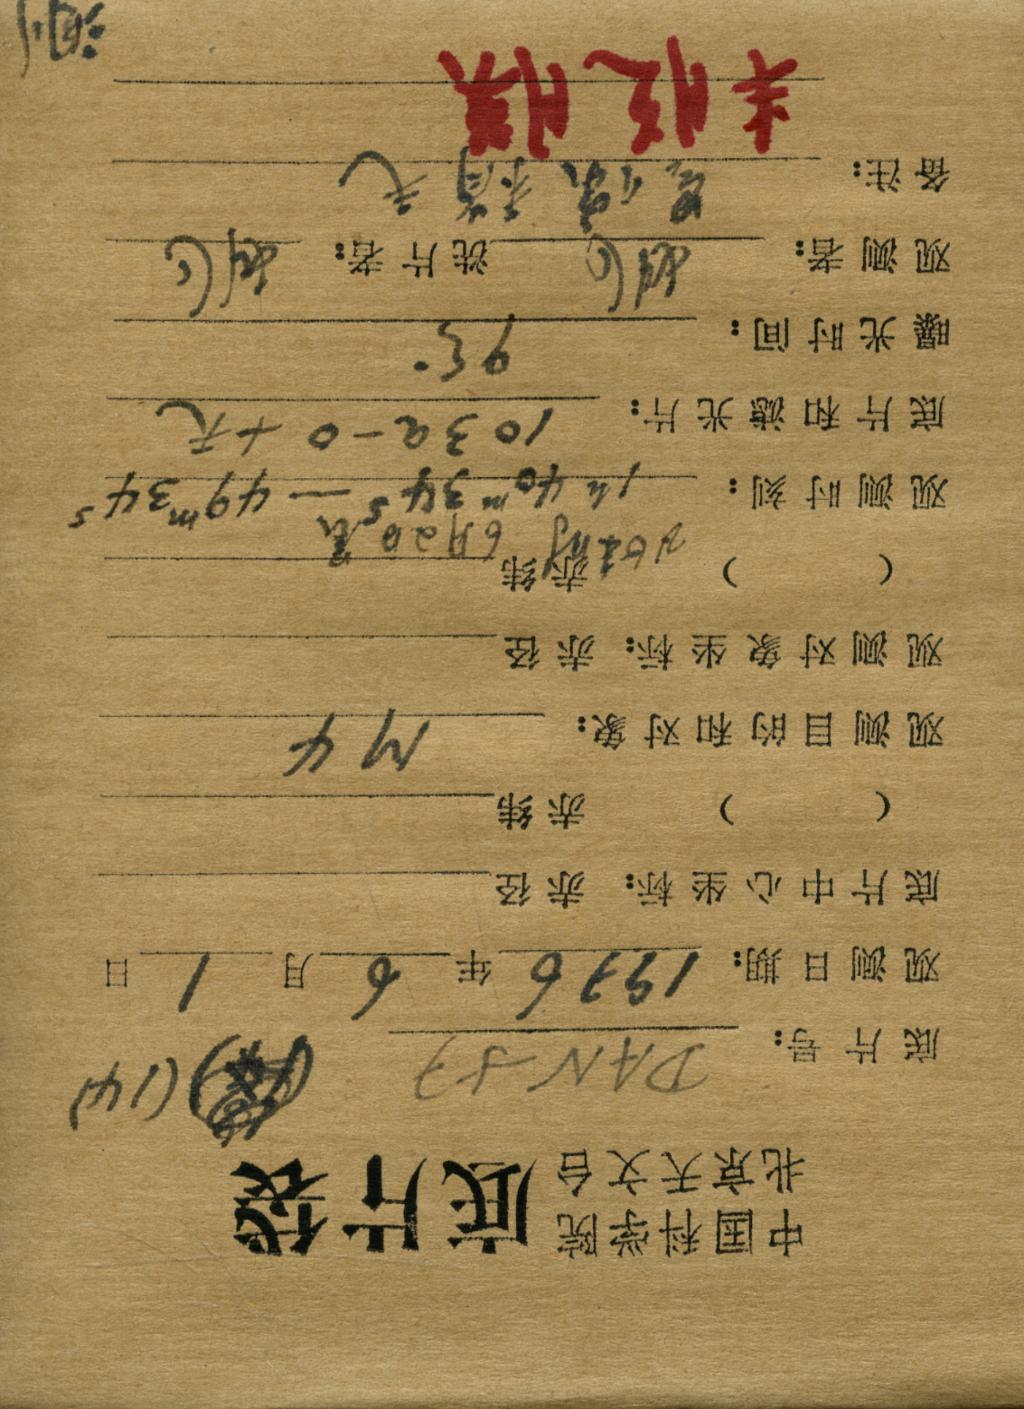 中国科学院
北京天文台 底片袋
(14)
底片号： DAN 57
观测日期： 1976 年 6 月 1 日
底片中心坐标： 赤径
（ ） 赤纬
观测目的和对象： M4
观测对象坐标： 赤径
（ ） 赤纬
6月20晨
观测时刻： 1h 40m 34s — 49m 34s
底片和滤光片： 103a-O + 无
曝光时间： 9分.
观测者： 洗片者：
备注： 星像稍